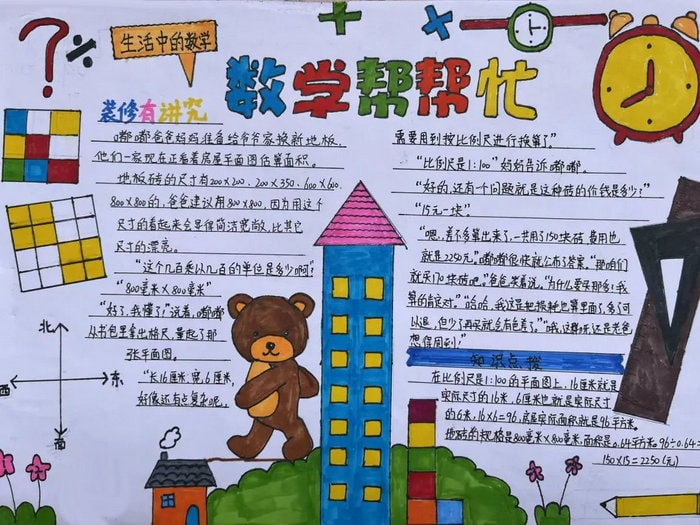 生活中的数学
数学帮帮忙
装修有讲究
嘟嘟爸爸妈妈准备给爷爷家换新地板,
他们一家现在正看着房屋平面图估算面积。
地板砖的尺寸有200×200、200×350、600×600
800×800的,爸爸建议用800×800,因为用这个
尺寸的看起来会显得简洁宽敞,比其它
尺寸的漂亮。
“这个几百乘以几百的单位是多少啊?”
“800毫米×800毫米”
“好了,我懂了!”说着,嘟嘟
从书包里拿出格尺,量起了那
张平面图。
“长16厘米,宽6厘米,
好像还有点复杂呢,
需要用到按比例尺进行换算了。”
“比例尺是1:100”妈妈告诉嘟嘟。
“好的,还有一个问题就是这种砖的价钱是多少?”
“15元一块。”
“嗯,差不多算出来了,一共用了150块砖,费用也
就是2250元。”嘟嘟很快就公布了答案。“那咱们
就买170块砖吧。”爸爸笑着说。“为什么要买那多!我
算的肯定对。”“哈哈,我这是把损耗也算里面了,多了可
以退,但少了再买就会有色差了。”“哦,这样啊!还是老爸
想得周到!”
知识点拨
在比例尺是1:100的平面图上,16厘米就是
实际尺寸的16米,6厘米也就是实际尺寸
的6米,16×6=96,房屋实际面积就是96平方米。
地砖的规格是800毫米×800毫米,面积是0.64平方米。96÷0.64=
150×15=2250(元)
北
西
东
南